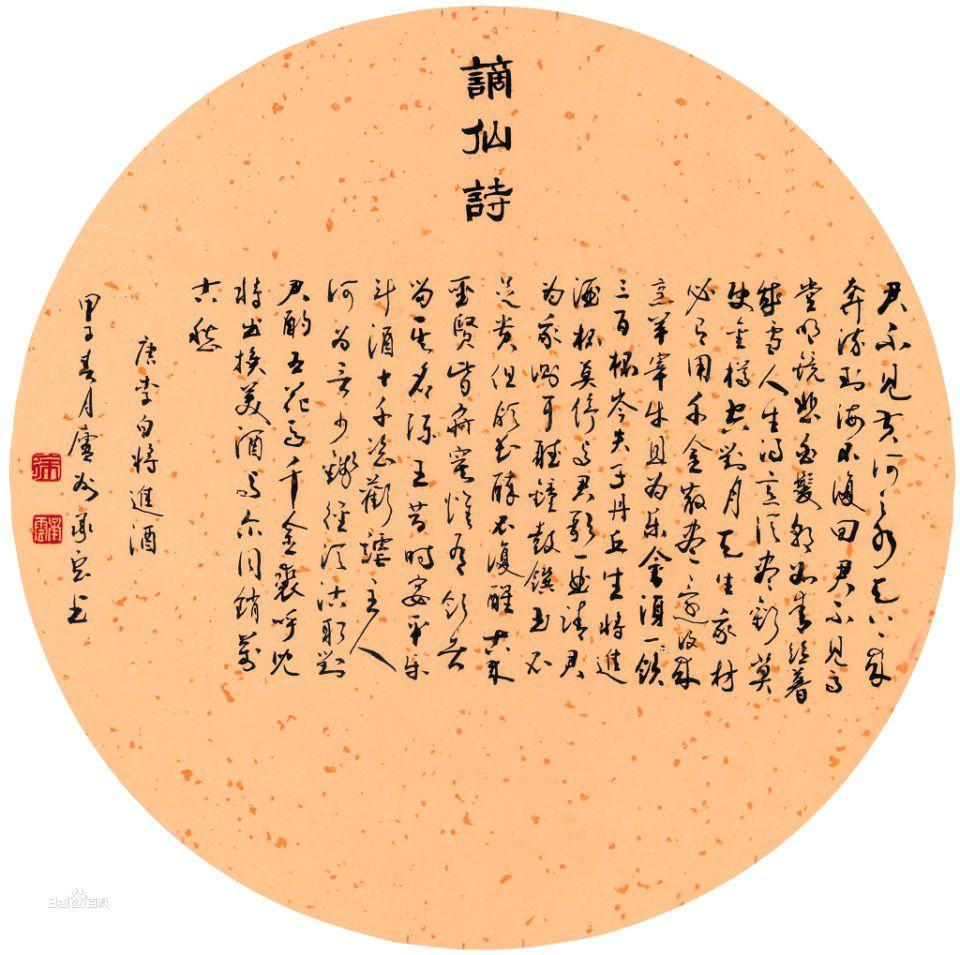 謫仙詩
君不見黄河之水天上來
奔流到海不復回君不見高
堂明鏡悲白髮朝如青絲暮
成雪人生得意須盡歡莫
使金樽空對月天生我材
必有用千金散盡還復來
烹羊宰牛且为樂會須一飲
三百杯岑夫子丹丘生將進
酒杯莫停与君歌一曲請君
为我側耳聽鐘鼓饌玉不
足貴但願長醉不復醒古來
聖賢皆寂寞惟有飲者
留其名陳王昔時宴平樂
斗酒十千恣歡謔主人
何为言少錢徑須沽取對
君酌五花馬千金裘呼兒
將出換美酒与尔同銷萬
古愁
唐李白將進酒
甲子春月廬州书
Baidu百科